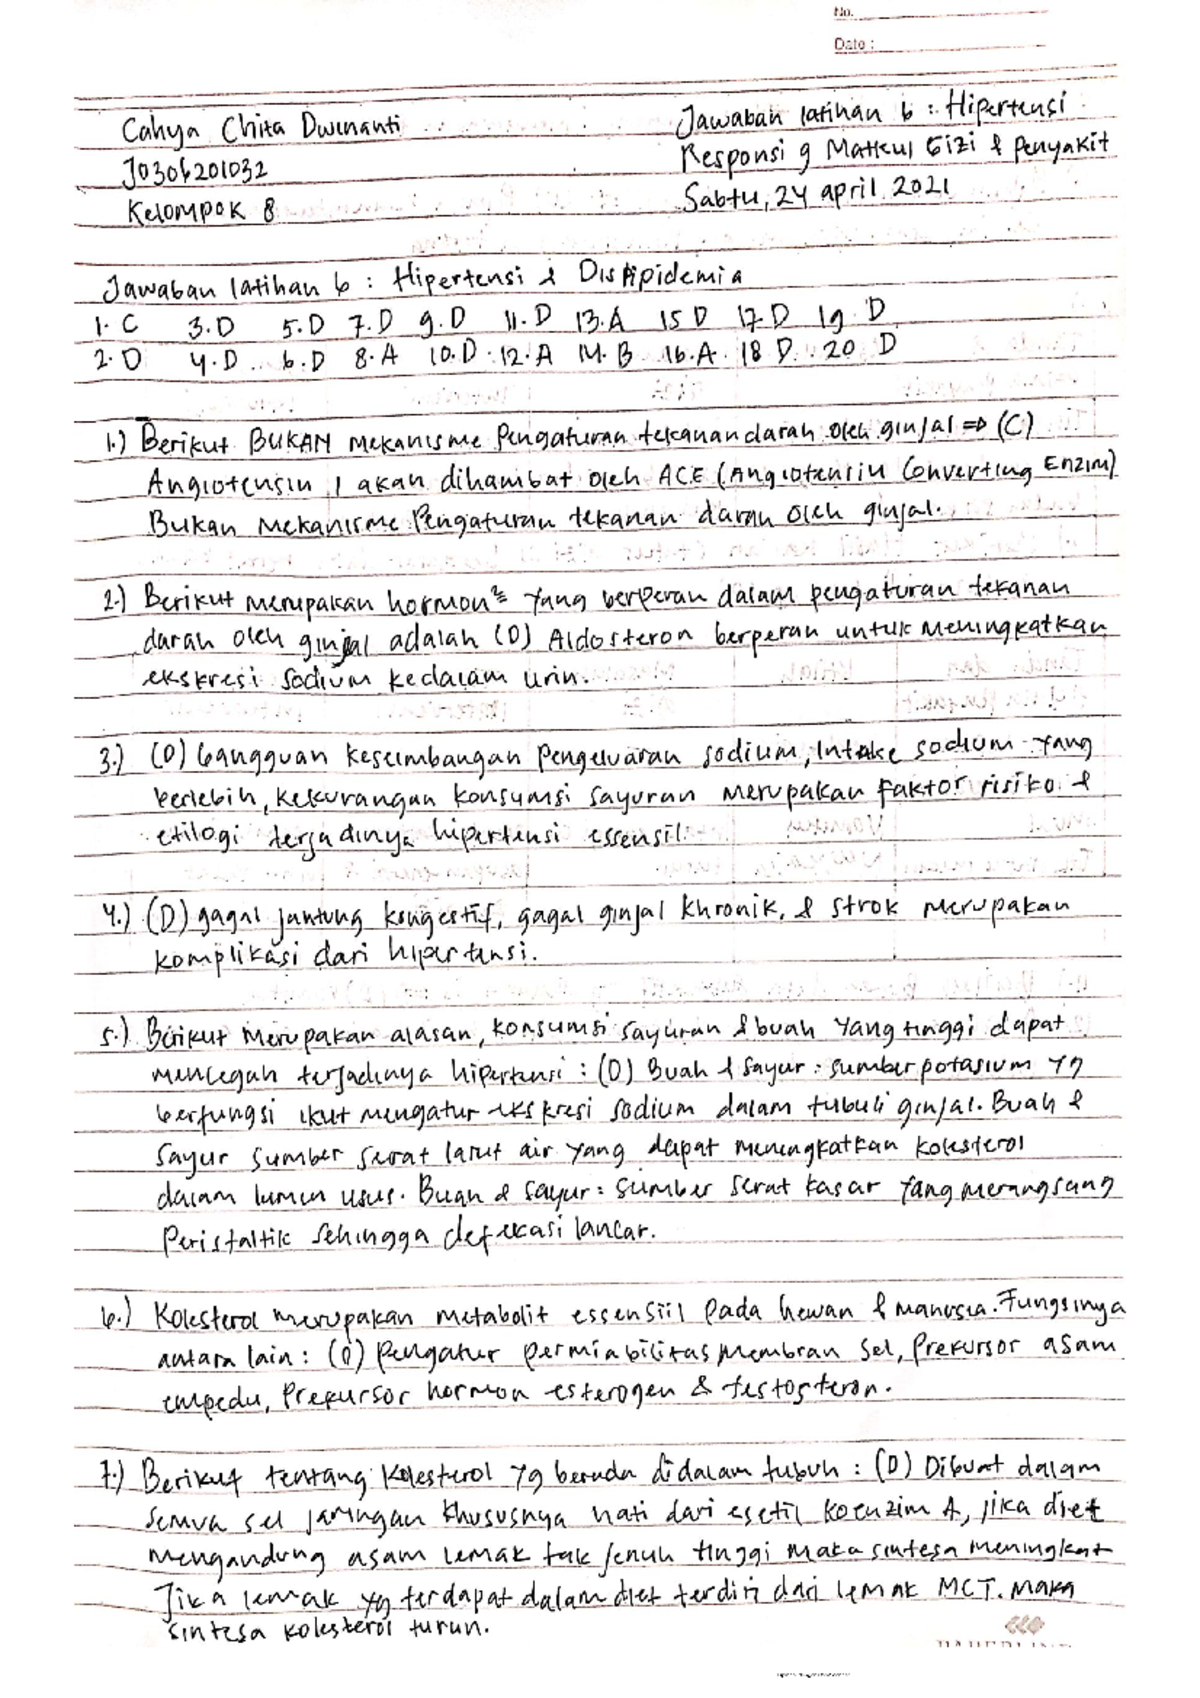 No.
Date :
Cahya Chita Dwinanti
Jawaban latihan 6 : Hipertensi
J0306201032
Responsi 9 Matkul Gizi & Penyakit
Kelompok 8
Sabtu, 24 april 2021
Jawaban latihan 6 : Hipertensi & Dislipidemia
1. C 3. D 5. D 7. D 9. D 11. D 13. A 15 D 17. D 19. D
2. D 4. D 6. D 8. A 10. D 12. A 14. B 16. A 18 D 20 D
1.) Berikut BUKAN mekanisme pengaturan tekanan darah oleh ginjal => (C)
Angiotensin 1 akan dihambat oleh ACE (Angiotensin Converting Enzim)
Bukan Mekanisme Pengaturan tekanan darah oleh ginjal.
2.) Berikut merupakan hormon² yang berperan dalam pengaturan tekanan
darah oleh ginjal adalah (D) Aldosteron berperan untuk meningkatkan
ekskresi sodium kedalam urin.
3.) (D) Gangguan keseimbangan pengeluaran sodium, Intake sodium yang
berlebih, kekurangan konsumsi sayuran merupakan faktor risiko &
etilogi terjadinya hipertensi essensil.
4.) (D) gagal jantung kongestif, gagal ginjal khronik, & strok merupakan
komplikasi dari hipertensi.
5.) Berikut merupakan alasan, konsumsi sayuran & buah yang tinggi dapat
mencegah terjadinya hipertensi : (D) Buah & sayur : sumber potasium yg
berfungsi ikut mengatur ekskresi sodium dalam tubuli ginjal. Buah &
sayur sumber serat larut air yang dapat meningkatkan kolesterol
dalam lumen usus. Buah & sayur : sumber serat kasar yang merangsang
peristaltik sehingga defekasi lancar.
6.) Kolesterol merupakan metabolit essensiil pada hewan & manusia. Fungsinya
antara lain : (D) pengatur permiabilitas membran sel, prekursor asam
empedu, prekursor hormon esterogen & testosteron.
7.) Berikut tentang kolesterol yg berada didalam tubuh : (D) Dibuat dalam
semua sel jaringan khususnya hati dari esetil koenzim A, jika diet
mengandung asam lemak tak jenuh tinggi maka sintesa meningkat
Jika lemak yg terdapat dalam diet terdiri dari lemak MCT. maka
sintesa kolesterol turun.